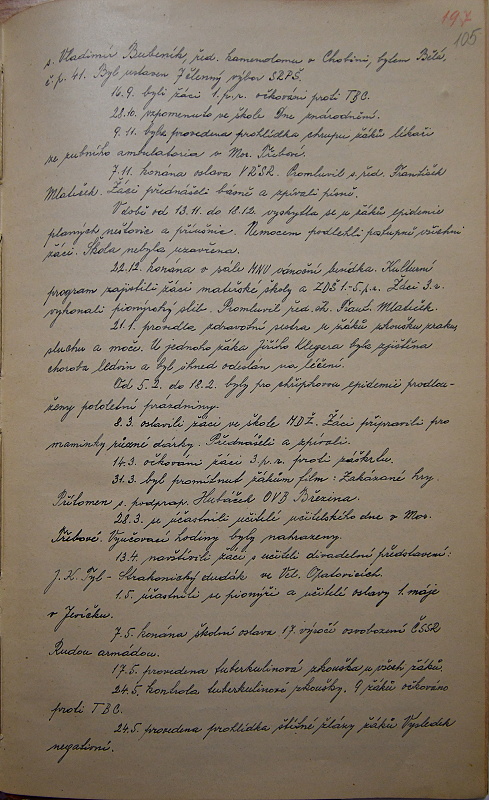 197
105
s. Vladimír Bubeník, řed. kamenolomu v Chobíně, bytem Bělá,
č.p. 41. Byl ustaven 7členný výbor SRPŠ.
16.9. byli žáci 1. p.r. očkováni proti TBC.
28.10. vzpomenuto ve škole Dne znárodnění.
9.11. byla provedena prohlídka chrupu žáků lékaři
ze zubního ambulatoria v Mor. Třebové.
7.11. konána oslava VŘSR. Promluvil s. řed. František
Mlatiček. Žáci přednášeli básně a zpívali písně.
V době od 13.11. do 18.12. vyskytla se u žáků epidemie
planých neštovic a příušnic. Nemocem podlehli postupně všichni
žáci. Škola nebyla uzavřena.
22.12. konána v sále MNV vánoční besídka. Kulturní
program zajistili žáci mateřské školy a ZDŠ 1.-5. p.r. Žáci 3. r.
vykonali pionýrský slib. Promluvil řed. šk. Frant. Mlatiček.
21.1. provedla zdravotní sestra u žáků zkoušku zraku,
sluchu a moče. U jednoho žáka Jiřího Klegera byla zjištěna
choroba ledvin a byl ihned odeslán na léčení.
Od 5.2. do 18.2. byly pro chřipkovou epidemii prodlou-
ženy pololetní prázdniny.
8.3. oslavili žáci ve škole MDŽ. Žáci připravili pro
maminky různé dárky. Přednášeli a zpívali.
14.3. očkováni žáci 3. p.r. proti záškrtu.
31.3. byl promítnut žákům film: Zakázané hry.
Přítomen s. podprap. Hlubáček OVB Březina.
28.3. se účastnili učitelé učitelského dne v Mor.
Třebové. Vyučovací hodiny byly nahrazeny.
13.4. navštívili žáci s učiteli divadelní představení:
J. K. Tyl - Strakonický dudák ve Vel. Opatovicích.
1.5. účastnili se pionýři a učitelé oslavy 1. máje
v Jevíčku.
7.5. konána školní oslava 17. výročí osvobození ČSSR
Rudou armádou.
17.5. provedena tuberkulinová zkouška u všech žáků.
24.5. kontrola tuberkulinové zkoušky. 9 žáků očkováno
proti TBC.
24.5. provedena prohlídka štítné žlázy žáků Výsledek
negativní.